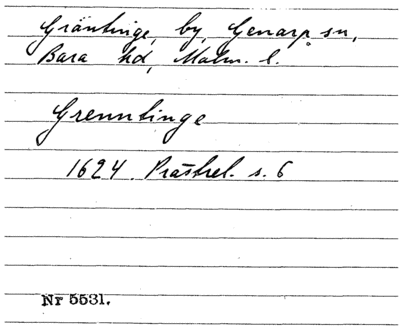 Gräntinge, by, Genarp sn,
Bara hd, Malm. l.
Grenntinge
1624 Prästrel. s. 6
Nr 5531.